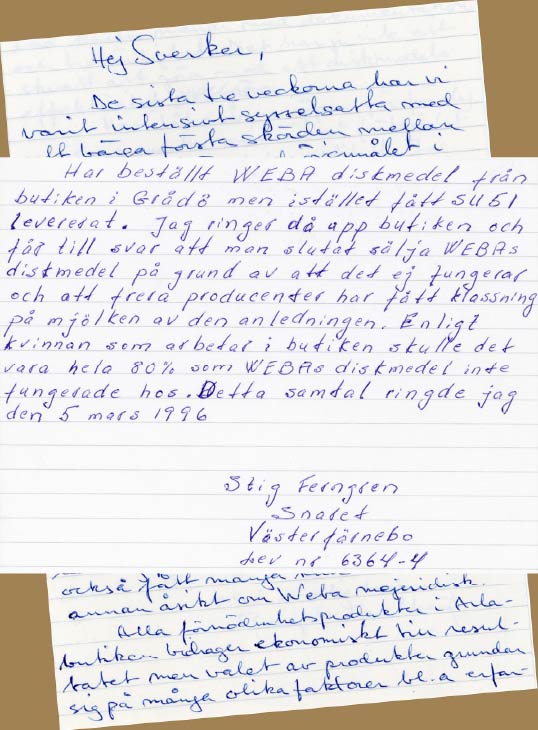 Hej Sverker,
De sista tre veckorna har vi
varit intensivt sysselsatta med
att bärga första skörden mellan
i
Har beställt WEBA diskmedel från
butiken i Grådö men istället fått SU51
levererat. Jag ringer då upp butiken och
får till svar att man slutat sälja WEBAs
diskmedel på grund av att det ej fungerar
och att frera producenter har fått klassning
på mjölken av den anledningen. Enligt
kvinnan som arbetar i butiken skulle det
vara hela 80% som WEBAs diskmedel inte
fungerade hos. Detta samtal ringde jag
den 5 mars 1996
Stig Ferngren
Snaret
Västerfärnebo
Lev nr 6364-4
också fått många
annan åsikt om Weba mejeridisk.
Alla förnödenhetsprodukter i Arla-
butiken bidrager ekonomiskt till resul-
tatet men valet av produkter grundar
sig på många olika faktorer bl.a erfar-